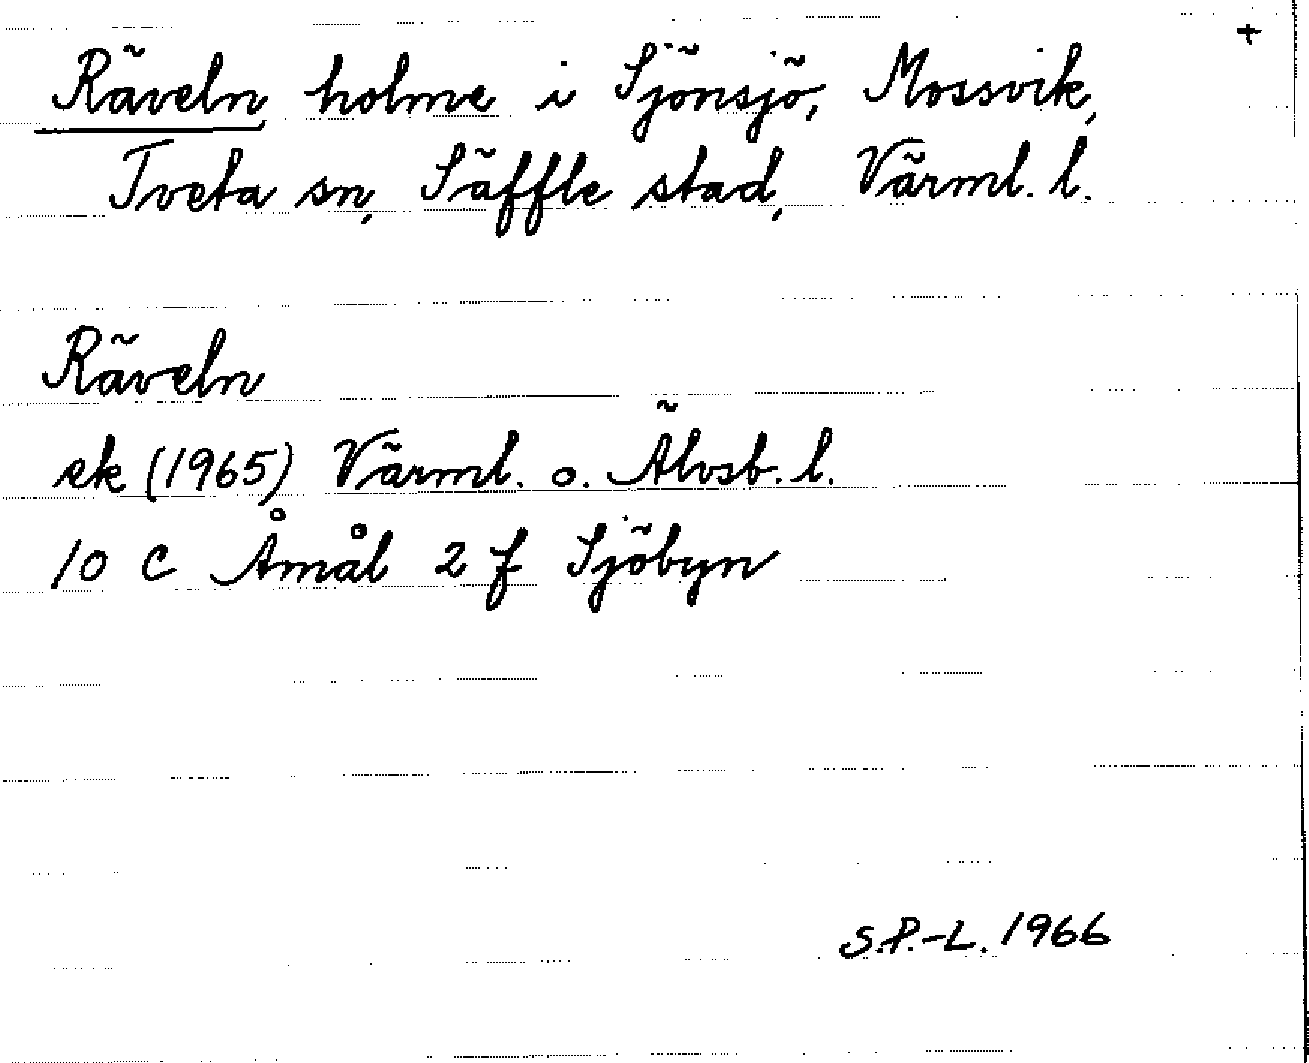 +
Räveln, holme i Sjönsjö, Mossvik,
Tveta sn, Säffle stad, Värml. l.
Räveln
ek (1965) Värml. o. Älvsb. l.
10 C Åmål 2 f Sjöbyn
S.P.-L. 1966